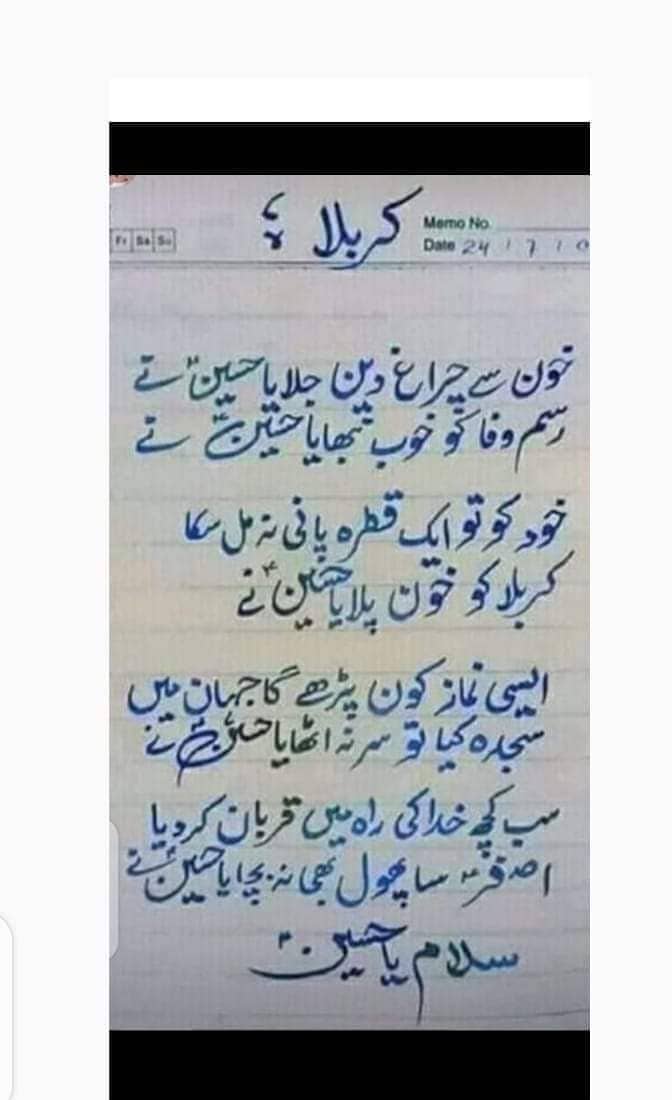 کربلا ؑ
Memo No.
Fr Sa Su
Date 24 / 7 / 0
خون سے چراغ دین جلایا حسینؑ نے
رسم وفا کو خوب نبھایا حسینؑ نے
خود کو تو ایک قطرہ پانی نہ مل سکا
کربلا کو خون پلایا حسینؑ نے
ایسی نماز کون پڑھے گا جہان میں
سجدہ کیا تو سر نہ اٹھایا حسینؑ نے
سب کچھ خدا کی راہ میں قربان کر دیا
اصغرؑ سا پھول بھی نہ بچایا حسینؑ نے
سلام یا حسینؑ